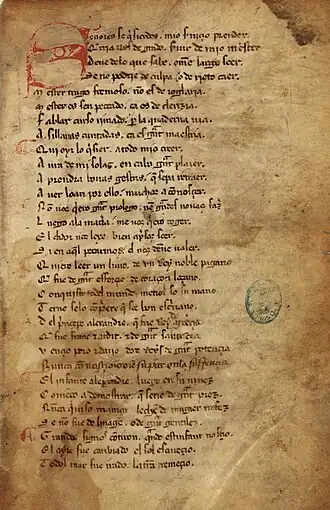 Señores se q̃redes mio seruiçio prender
Q̃rria uos de grado seruir de mio mester
Deue de lo que sabe om̃e largo seer
Se no podrie de culpa o de rieto caer
Mester trago fermoso nõ es de ioglaria
Mester es sen peccado ca es de clerezia
Fablar curso rimado per la quaderna uia
A sillauas cuntadas ca es grãt maestria
Qui oyr lo q̃sier a todo mio creer
Aura de mi solaz en cabo grãt plazer
Aprendra bonas gestas que sepa retraer
Auer lo an por ello muchos a connoscer
Nõ uos q̃ero grãt prologo nẽ grãdes nouas fazer
Luego a la materia me uos q̃ero coger
El criador nos lexe bien apresos seer
Si en aq̃l pecarmos el nos deñe ualer
Quiero leer un liuro de un rey noble pagano
Que fue de grãt esforcio de coraçon loçano
Conquisto todel mundo metiol so su mano
Terne se lo compriere que soe bon escriuano
Del prinçepe alexandre que fue rey de greçia
Que fue franc e ardit e de grãt sabençia
Uençio poro e dario dos reys de grãt potençia
Nunca
El infante alexandre luego en su ninnez
Começo a demostrar que serie de grãt prez
Nũca quiso mamar leche de mugier rafez
Se nõ fue de linage o de grãt gentilez
Grandes signos contiron quãdo est infant nasçio
El ayre fue cambiado el sol escureçio
Todol mar fue irado la tierra tremeçio